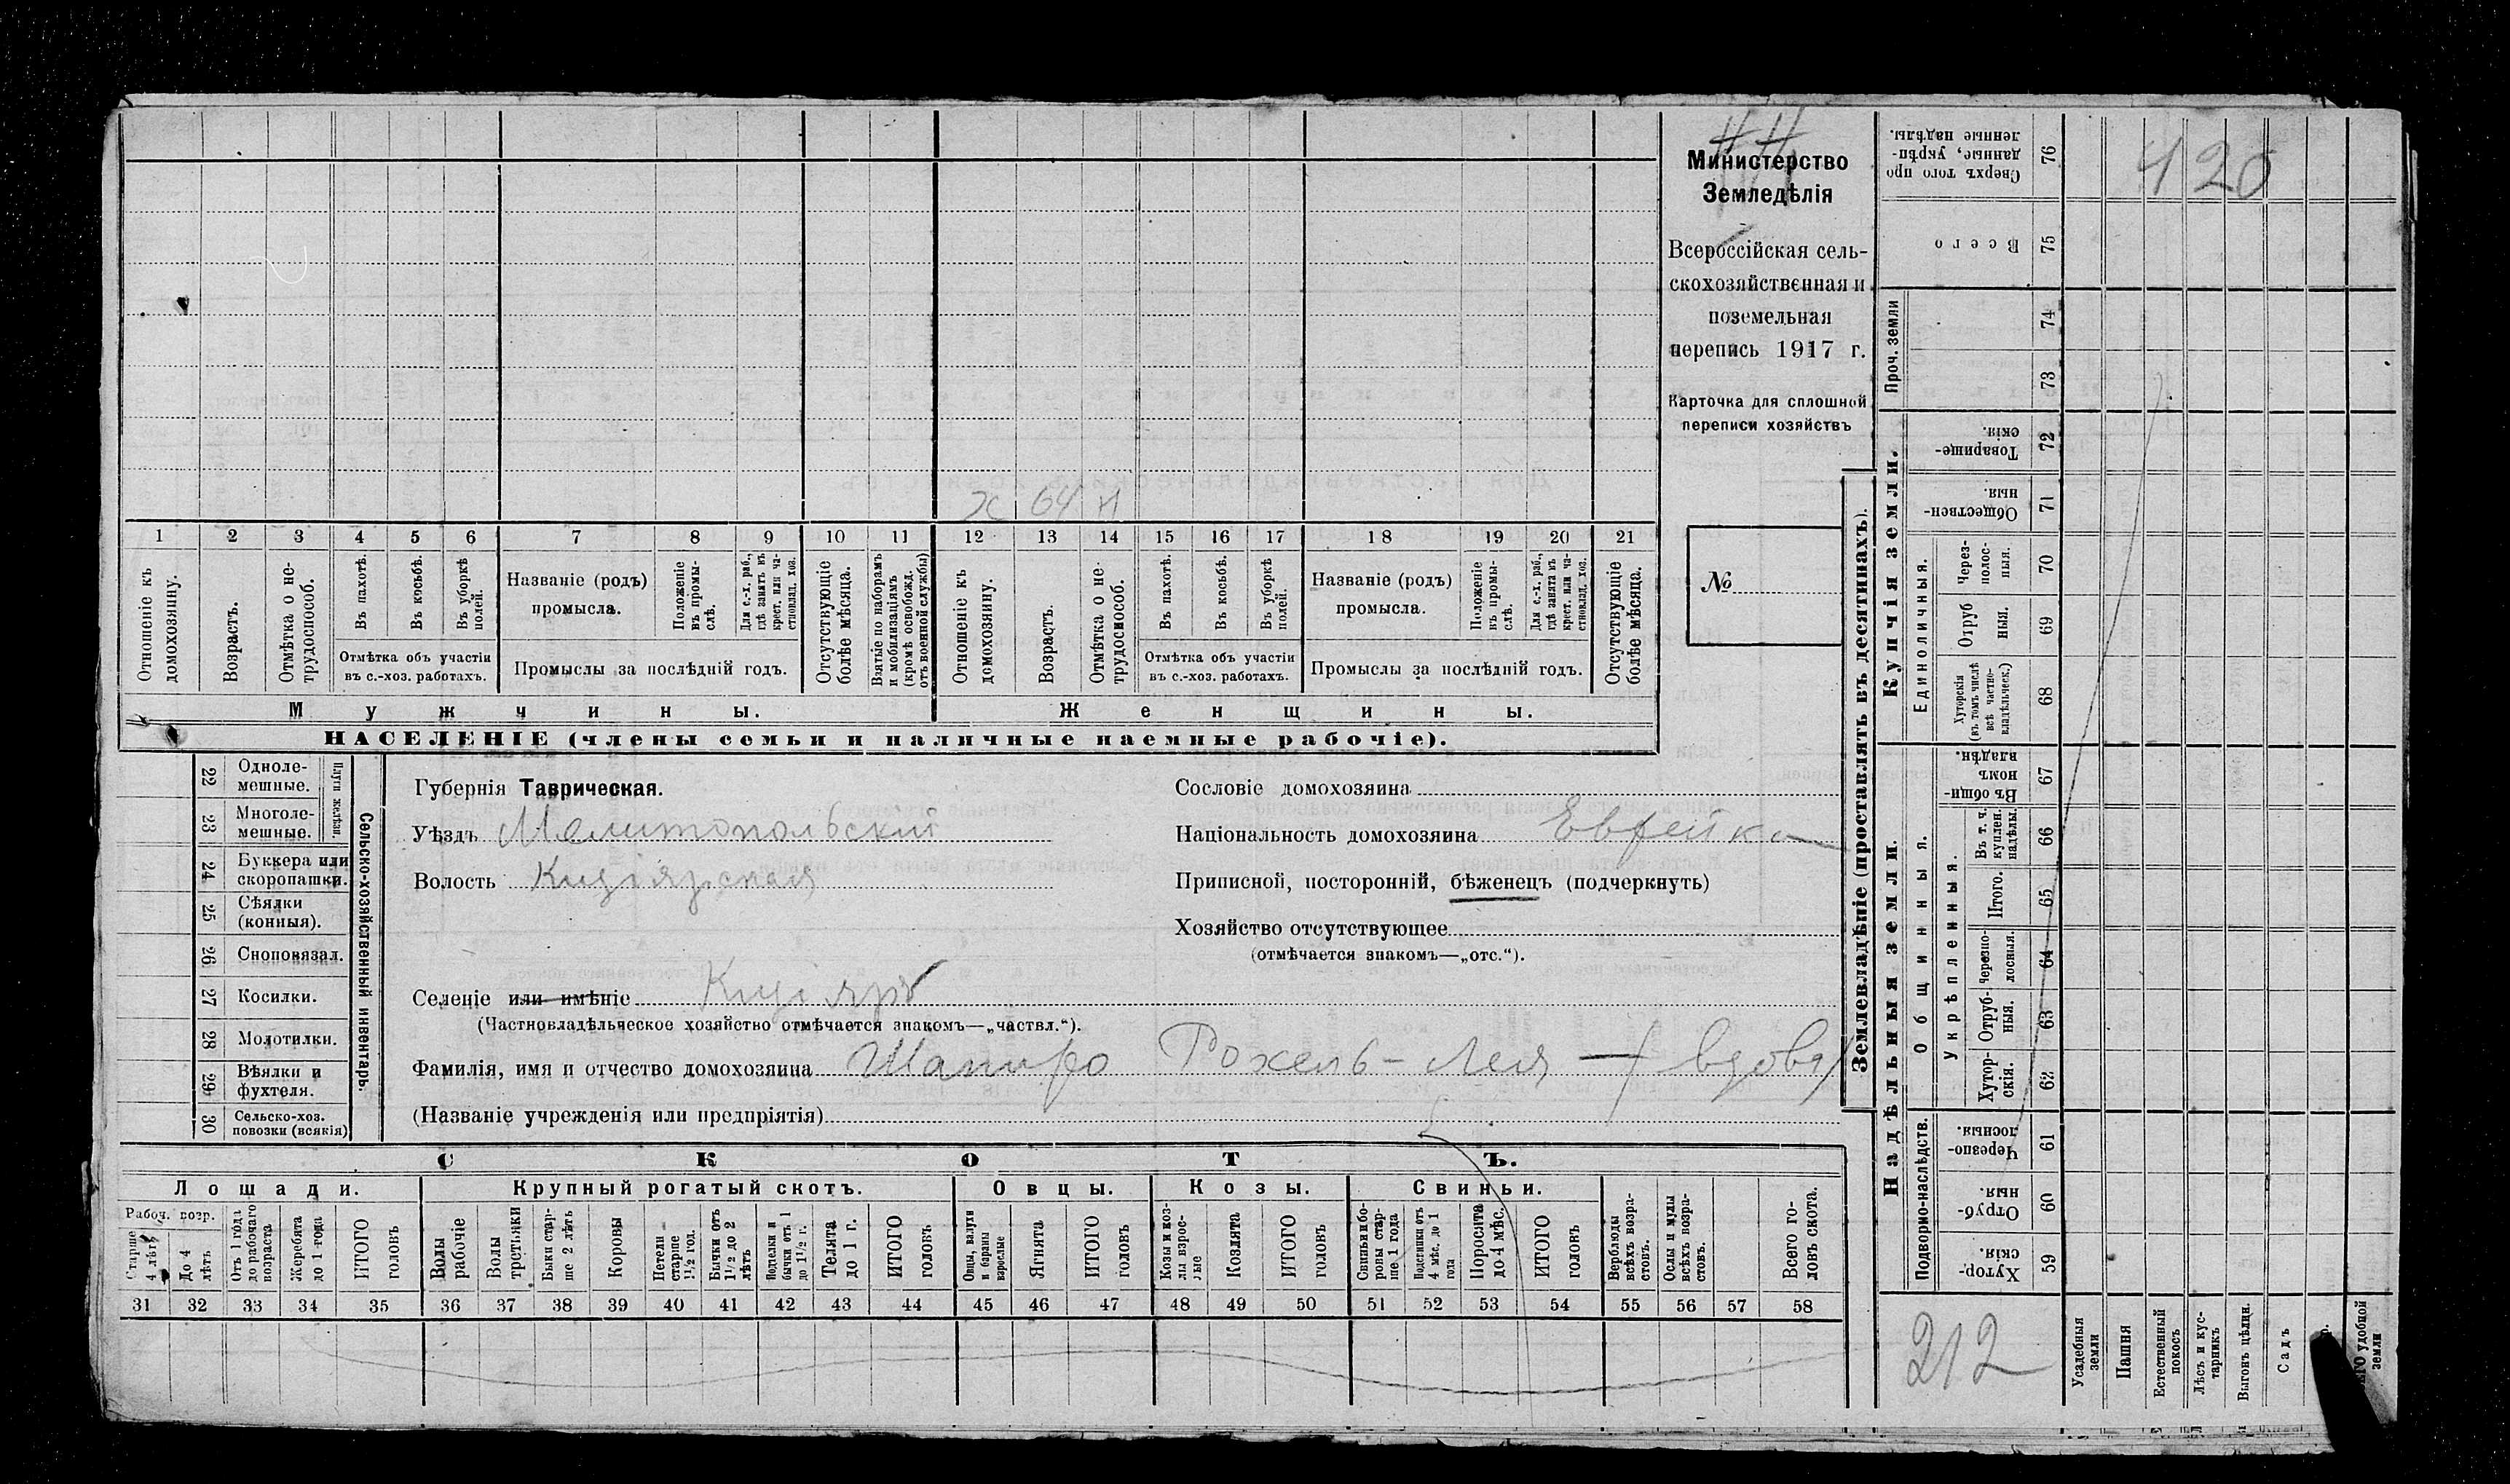 Министерство
Земледѣлія
Всероссійская сель-
скохозяйственная и
поземельная
перепись 1917 г.
Карточка для сплошной
переписи хозяйствъ
№
х 64 н
1 2 3 4 5 6 7 8 9 10 11 12 13 14 15 16 17 18 19 20 21
Отношеніе къ домохозяину.
Возрастъ.
Отмѣтка о не-трудоспособ.
Въ пахотѣ.
Въ косьбѣ.
Въ уборкѣ полей.
Отмѣтка объ участіи
въ с.-хоз. работахъ.
Названіе (родъ)
промысла.
Положеніе въ промы-слѣ.
Для с.-х. раб., гдѣ занятъ въ крест. или ча-стновлад. хоз.
Промыслы за послѣдній годъ.
Отсутствующіе болѣе мѣсяца.
Взятые по наборамъ и мобилизаціямъ (кромѣ освобожд. отъ военной службы)
Отношеніе къ домохозяину.
Возрастъ.
Отмѣтка о не-трудоспособ.
Въ пахотѣ.
Въ косьбѣ.
Въ уборкѣ полей.
Отмѣтка объ участіи
въ с.-хоз. работахъ.
Названіе (родъ)
промысла.
Положеніе въ промы-слѣ.
Для с.-х. раб., гдѣ занята въ крест. или ча-стновлад. хоз.
Промыслы за послѣдній годъ.
Отсутствующіе болѣе мѣсяца.
Мужчины.
Женщины.
НАСЕЛЕНІЕ (члены семьи и наличные наемные рабочіе).
22 Одноле-мешные.
23 Многоле-мешные.
Плуги желѣзн.
24 Буккера или скоропашки.
25 Сѣялки (конныя).
26 Сноповязал.
27 Косилки.
28 Молотилки.
29 Вѣялки и фухтеля.
30 Сельско-хоз. повозки (всякія)
Сельско-хозяйственный инвентарь.
Губернія Таврическая.
Уѣздъ Мелитопольский
Волость Кизіярская
Селеніе или имѣніе Кизіяръ
(Частновладѣльческое хозяйство отмѣчается знакомъ—„частвл.“).
Фамилія, имя и отчество домохозяина Шапиро Рохель-Лея — (вдова)
(Названіе учрежденія или предпріятія)
Сословіе домохозяина
Національность домохозяина Еврейка
Приписной, посторонній, бѣженецъ (подчеркнуть)
Хозяйство отсутствующее
(отмѣчается знакомъ—„отс.“).
СКОТЪ.
Лошади.
Крупный рогатый скотъ.
Овцы.
Козы.
Свиньи.
Рабоч. возр.
Старше 4 лѣтъ
До 4 лѣтъ
Отъ 1 года до рабочаго возраста
Жеребята до 1 года
ИТОГО головъ
Волы рабочіе
Волы третьяки
Быки стар-ше 2 лѣтъ
Коровы
Нетели старше 1½ год.
Бычки отъ 1½ до 2 лѣтъ
Подтелки и бычки отъ 1 до 1½ г.
Телята до 1 г.
ИТОГО головъ
Овцы, валухи и бараны взрослые
Ягнята
ИТОГО головъ
Козы и коз-лы взрос-лые
Козлята
ИТОГО головъ
Свиньи и бо-ровы стар-ше 1 года
Подсвинки отъ 4 мѣс. до 1 года
Поросята до 4 мѣс.
ИТОГО головъ
Верблюды всѣхъ возра-стовъ.
Ослы и мулы всѣхъ возра-стовъ.
Всего го-ловъ скота.
31 32 33 34 35 36 37 38 39 40 41 42 43 44 45 46 47 48 49 50 51 52 53 54 55 56 57 58
Землевладѣніе (проставлять въ десятинахъ).
Сверхъ того про-данные, укрѣп-ленные надѣлы. 76
420
Всего 75
Проч. земли
74
73
Купчія земли.
Товарище-скія. 72
Обществен-ныя 71
Единоличныя.
Через-полос-ныя. 70
Отруб-ныя. 69
Хуторскія (въ томъ числѣ всѣ частно-владѣльческ.) 68
Надѣльныя земли.
Въ общин-номъ владѣн. 67
Общинныя.
Въ т. ч. куплен. надѣлы. 66
Укрѣпленныя.
Итого. 65
Черезпо-лосныя. 64
Отруб-ныя. 63
Хутор-скія. 62
Подворно-наслѣдств.
Черезпо-лосныя. 61
Отруб-ныя. 60
Хутор-скія. 59
212
Усадебныя земли
Пашня
Естественный покосъ
Лѣсъ и кус-тарникъ
Выгонъ цѣлин.
Садъ
удобной земли